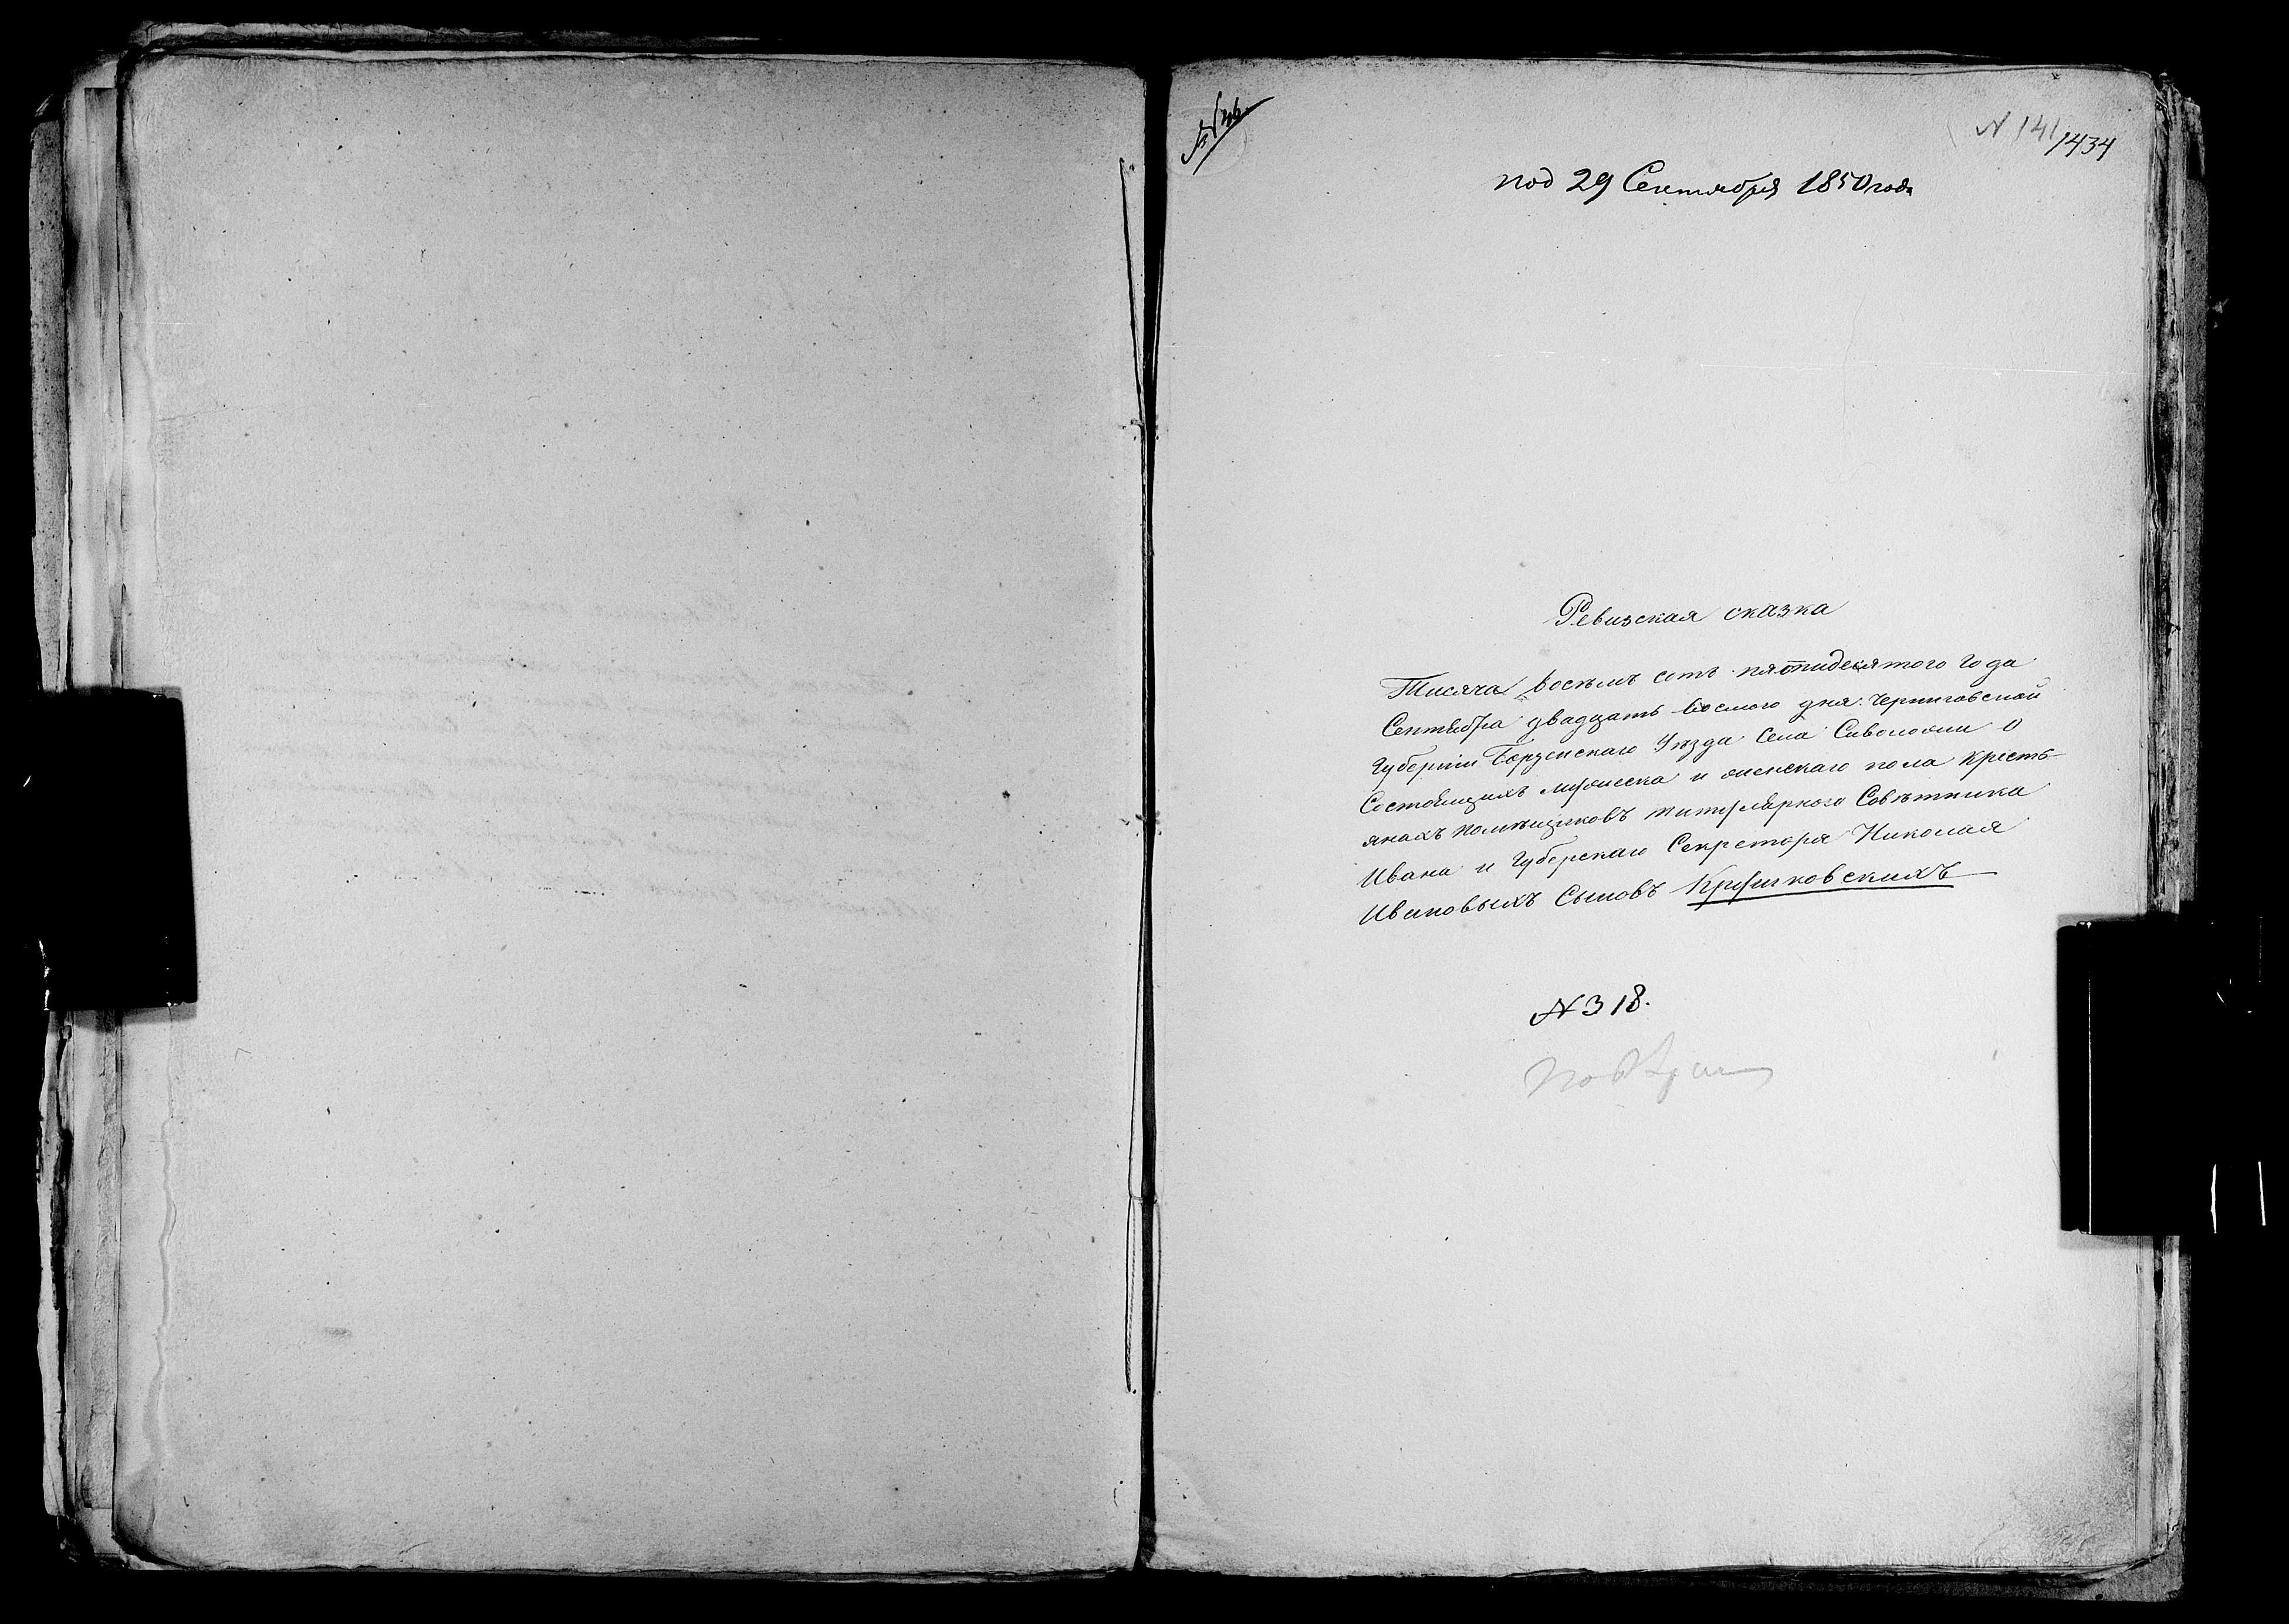 N 141
1434
под 29 Сентября 1850 года
Ревизская сказка
Тисяча восемъ сотъ пятидесятого года
Сентября двадцать восмого дня. Черниговской
Губернии Борзенскаго Уѣзда Села Сиволожи О
Состоящихъ мужеска и женскаго пола Кресть-
янахъ помѣщиковъ титулярного Совѣтника
Ивана и Губерскаго Секретаря Николая
Ивановыхъ Сыновъ
N 318.